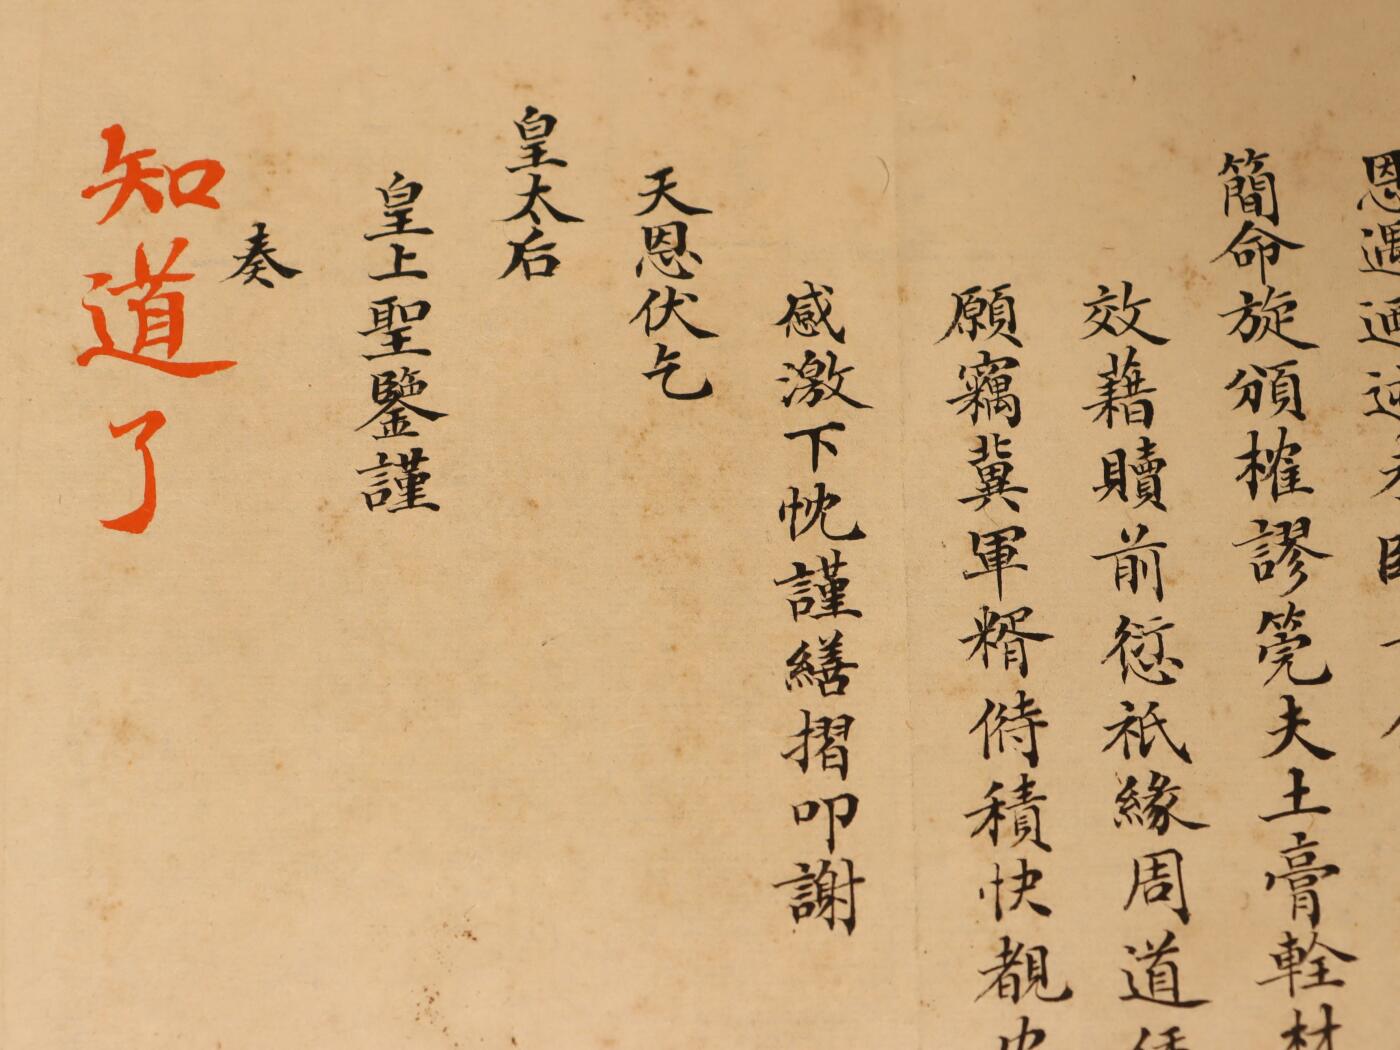 恩遇
簡命旋頒榷謬筦夫土膏輇材
效藉贖前愆祇緣周道
願竊冀軍糈偫積快覩
感激下忱謹繕摺叩謝
天恩伏乞
皇太后
皇上聖鑒謹
奏
知道了